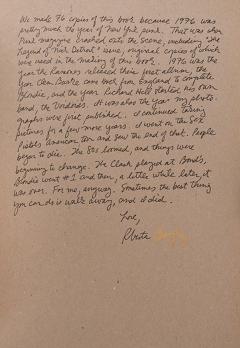 We made 76 copies of this book because 1976 was
pretty much the year of New York punk. That was when
Punk magazine crashed onto the scene, including "The
Legend of Nick Detroit" issue, original copies of which
were used in the making of this book. 1976 was the
year the Ramones released their first album, the
year Clem Burke came back from England to complete
Blondie, and the year Richard Hell started his own
band, the Voidoids. It was also the year my photo-
graphs were first published. I continued taking
pictures for a few more years. I went on the Sex
Pistols American tour and saw the end of that. People
began to die. The 80s loomed, and things were
beginning to change. The Clash played at Bonds,
Blondie went #1 and then, a little while later, it
was over. For me, anyway. Sometimes the best thing
you can do is walk away, and I did.
Love,
Roberta